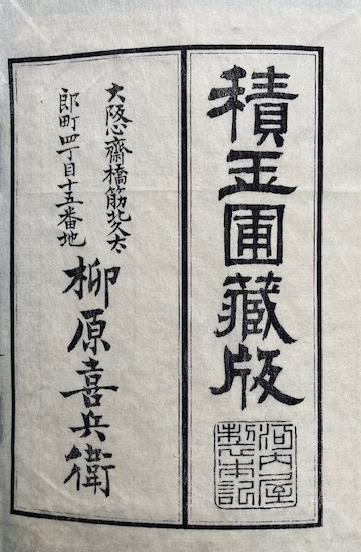 積玉圃藏版
河内屋
製本記
大阪心齋橋筋北久太
郎町四丁目十五番地
柳原喜兵衛